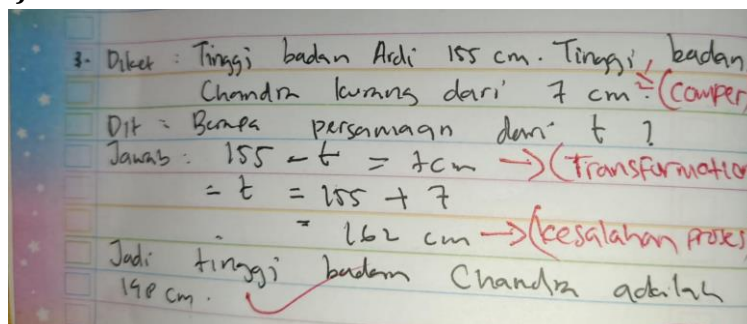 3. Diket : Tinggi badan Ardi 155 cm. Tinggi badan
Chandra kurang dari 7 cm. → (Comper
Dit : Berapa persamaan dari t ?
Jawab : 155 - t = 7cm → (Transformatio
= t = 155 + 7
= 162 cm → (kesalahan proses
Jadi tinggi badan Chandra adalah
148 cm.